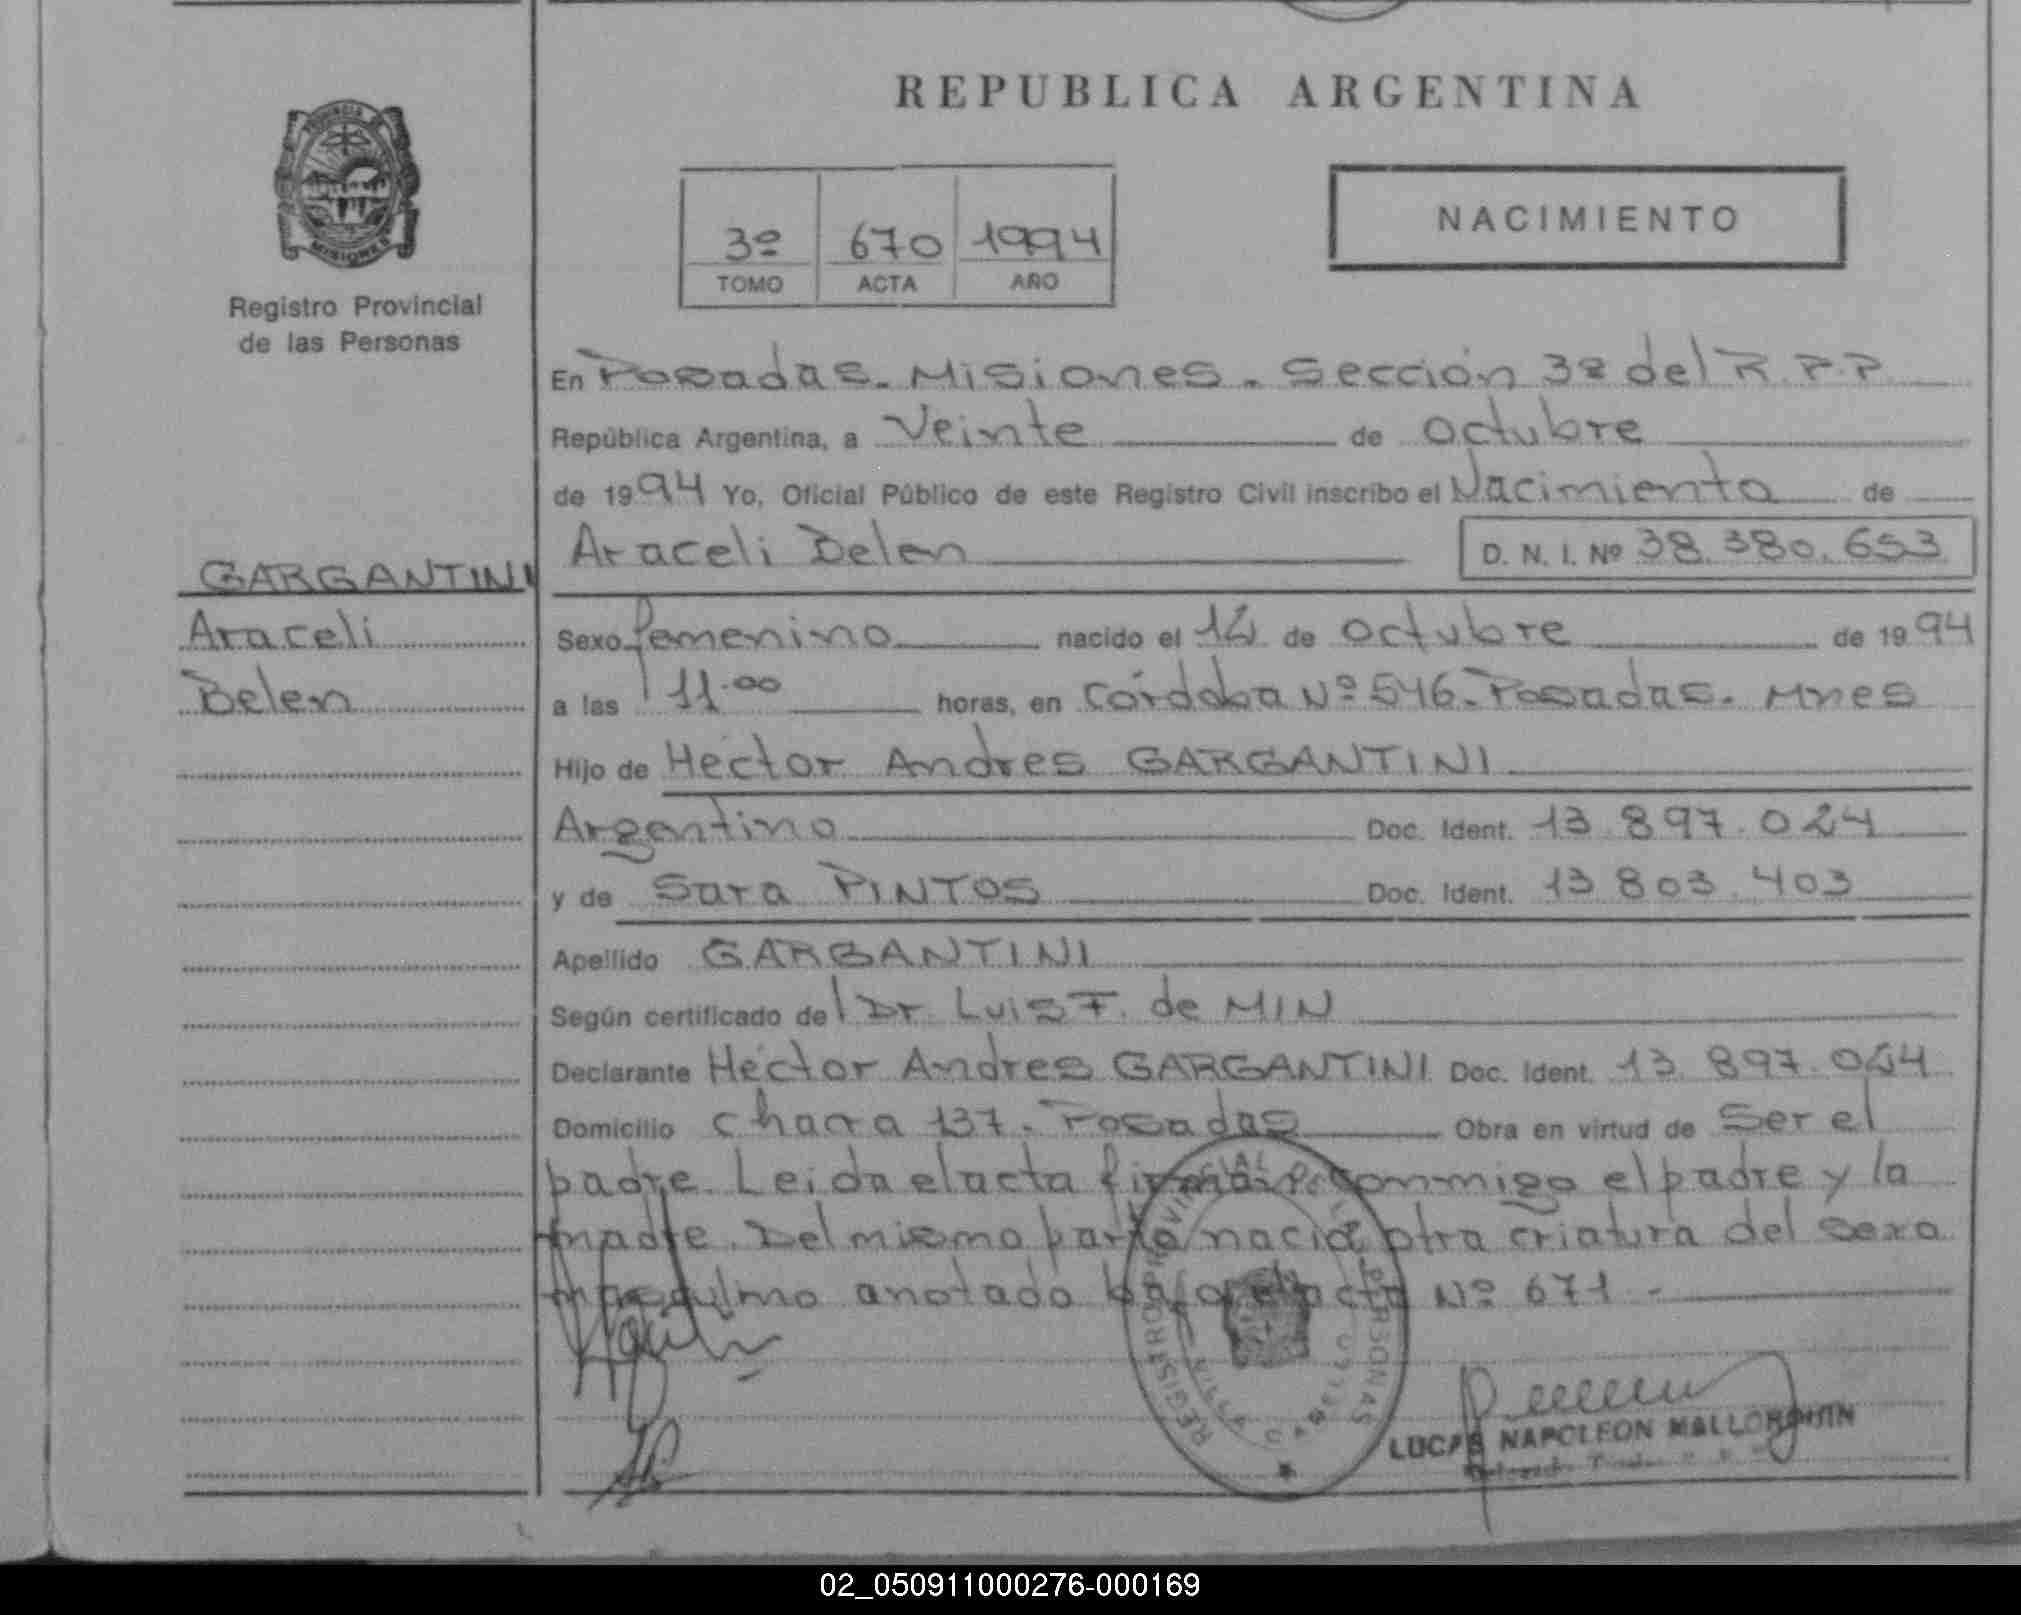 REPUBLICA ARGENTINA
PROVINCIA
MISIONES
Registro Provincial
de las Personas
3º 670 1994
TOMO ACTA AÑO
NACIMIENTO
En Posadas. Misiones. Sección 3ª del R.P.P
República Argentina, a Veinte de Octubre
de 1994 Yo, Oficial Público de este Registro Civil inscribo el Nacimiento de
Araceli Belen D. N. I. Nº 38.380.653
GARGANTINI
Araceli
Belen
Sexo femenino nacido el de Octubre de 1994
a las 11.00 horas, en Córdoba Nº 546. Posadas. Mnes
Hijo de Hector Andres GARGANTINI
Argentino Doc. Ident. 13.897.024
y de Sara PINTOS Doc. Ident. 13.803.403
Apellido GARGANTINI
Según certificado del Dr. Luis F. de MIN
Declarante Héctor Andres GARGANTINI Doc. Ident. 13.897.024
Domicilio Chacra 137. Posadas Obra en virtud de Ser el
padre. Leida el acta firman conmigo el padre y la
madre. Del mismo parto nació otra criatura del sexo
masculino anotado bajo el acta Nº 671.-
REGISTRO PROVINCIAL DE LAS PERSONAS
LUCAS NAPOLEON MALLORQUIN
02_050911000276-000169